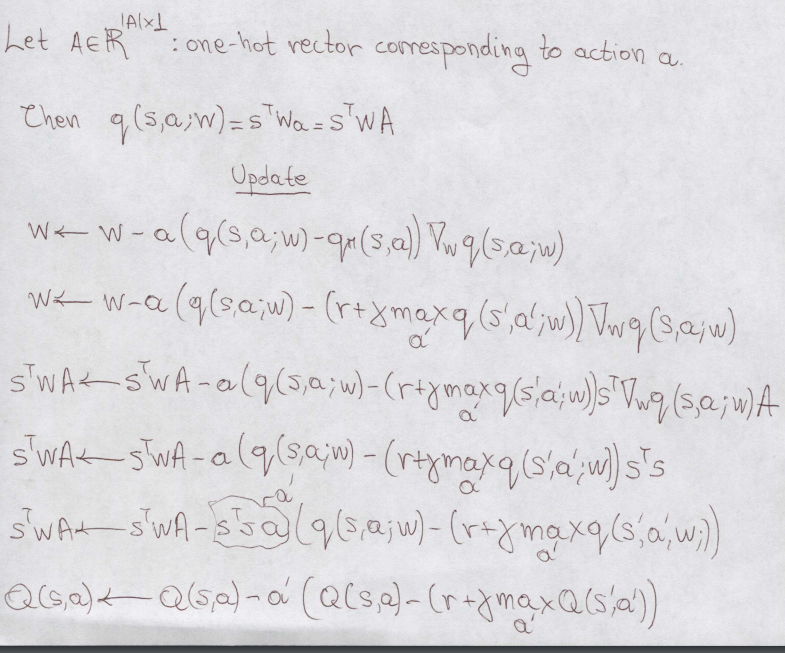 Let A∈ℝ^{|A|×1} : one-hot vector corresponding to action a.
Then q(s,a;w)=sᵀWa=sᵀWA
Update
W← W-a(q(s,a;w)-qπ(s,a))∇w q(s,a;w)
W← W-a(q(s,a;w)-(r+γ max_{a'} q(s',a';w))∇w q(s,a;w)
sᵀWA← sᵀWA-a(q(s,a;w)-(r+γ max_{a'} q(s',a';w))sᵀ∇w q(s,a;w)A
sᵀWA← sᵀWA-a(q(s,a;w)-(r+γ max_{a'} q(s',a';w))sᵀs
a'
sᵀWA← sᵀWA-sᵀsa(q(s,a;w)-(r+γ max_{a'} q(s',a',w;))
Q(s,a)← Q(s,a)-a'(Q(s,a)-(r+γ max_{a'} Q(s',a'))